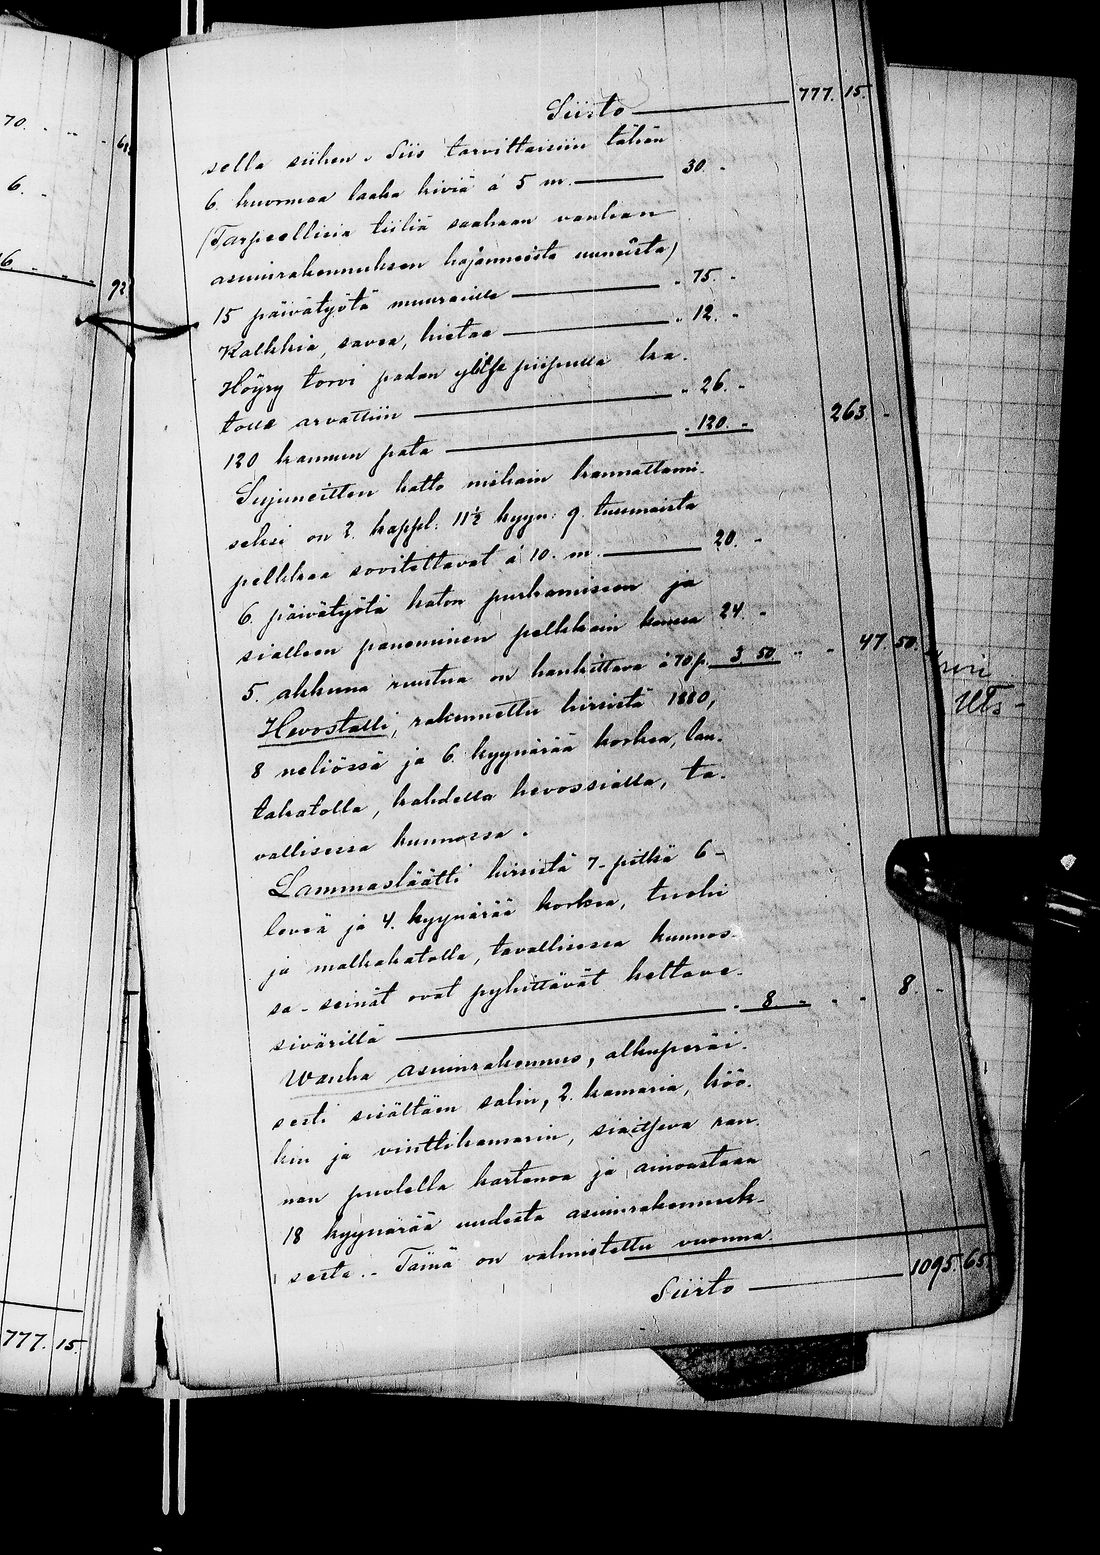 70. " "
6.
6 " "
92
777. 15.
Siirto 777. 15.
sella siihen. Siis tarvittaisiin tähän
6. kuormaa laaka kiviä á 5 m. 30. -
(Tarpeellisia tiiliä saahaan vanhan
asuinrakennuksen hajanneista uuneista)
15 päivätyötä muuraille " 75. -
Kalkkia, savea, hietaa " 12. -
Höyry torvi padan piipulla ka-
tolle arvattiin " 26. -
120 kannun pata " 120. - 263 -
Sujuneitten katto niskain kannattami-
seksi on 2. kappl: 11½ kyyn: 9. tuumaista
pelkkaa sovitettavat á 10. m. 20. -
6. päivätyötä katon purkamiseen ja
sialleen paneminen pelkkain kanssa 24. -
5. akkuna ruutua on hankittava á 70 p. 3 50 " - 47. 50.
Hevostalli, rakennettu hirsistä 1880,
8 neliössä ja 6. kyynärää korkea, lau-
takatolla, kahdella hevossialla, ta-
vallisessa kunnossa.
Lammasläätti hirsistä 7- pitkä 6-
leveä ja 4. kyynärää korkea, tuohi
ja malkakatolla, tavallisessa kunnos-
sa - seinät ovat pyhittävät keltave-
sivärillä " 8. - - - 8. -
Wanha asuinrakennus, alkuperäi-
sesti sisältäen salin, 2. kamaria, köö-
kin ja vinttikamarin, siaitseva ran-
nan puolella kartanoa ja ainoastaan
18 kyynärää uudesta asuinrakennuk-
sesta. - Tämä on valmistettu vuonna
Siirto 1095. 65.